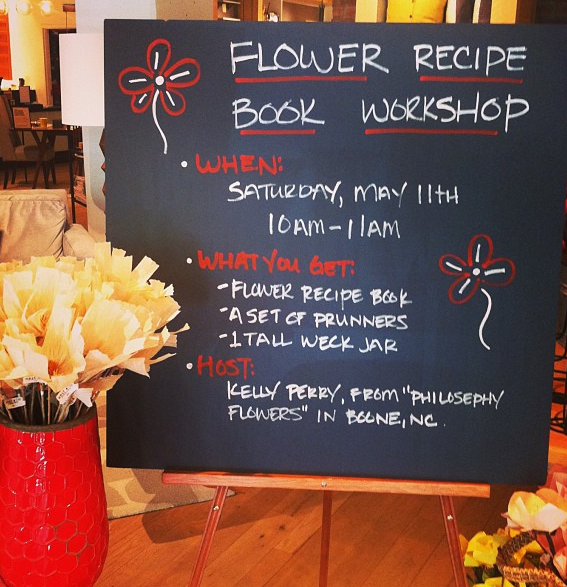 FLOWER RECIPE
BOOK WORKSHOP
• WHEN:
SATURDAY, MAY 11TH
10AM-11AM
• WHAT YOU GET:
-FLOWER RECIPE BOOK
-A SET OF PRUNNERS
-1 TALL WECK JAR
• HOST:
KELLY PERRY, FROM "PHILOSEPHY
FLOWERS" IN BOONE, NC.